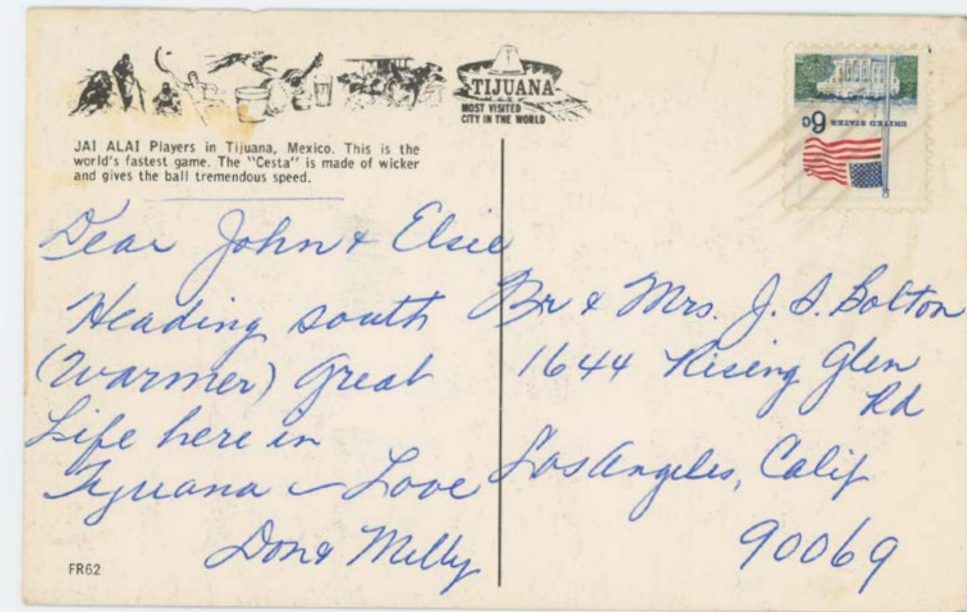 TIJUANA
MOST VISITED
CITY IN THE WORLD
JAI ALAI Players in Tijuana, Mexico. This is the
world's fastest game. The "Cesta" is made of wicker
and gives the ball tremendous speed.
Dear John & Elsie
Heading south
(warmer) great
life here in
Tijuana – Love
Don & Milly
FR62
UNITED STATES
6c
Br & Mrs. J. S. Bolton
1644 Rising Glen
Rd
Los Angeles, Calif
90069